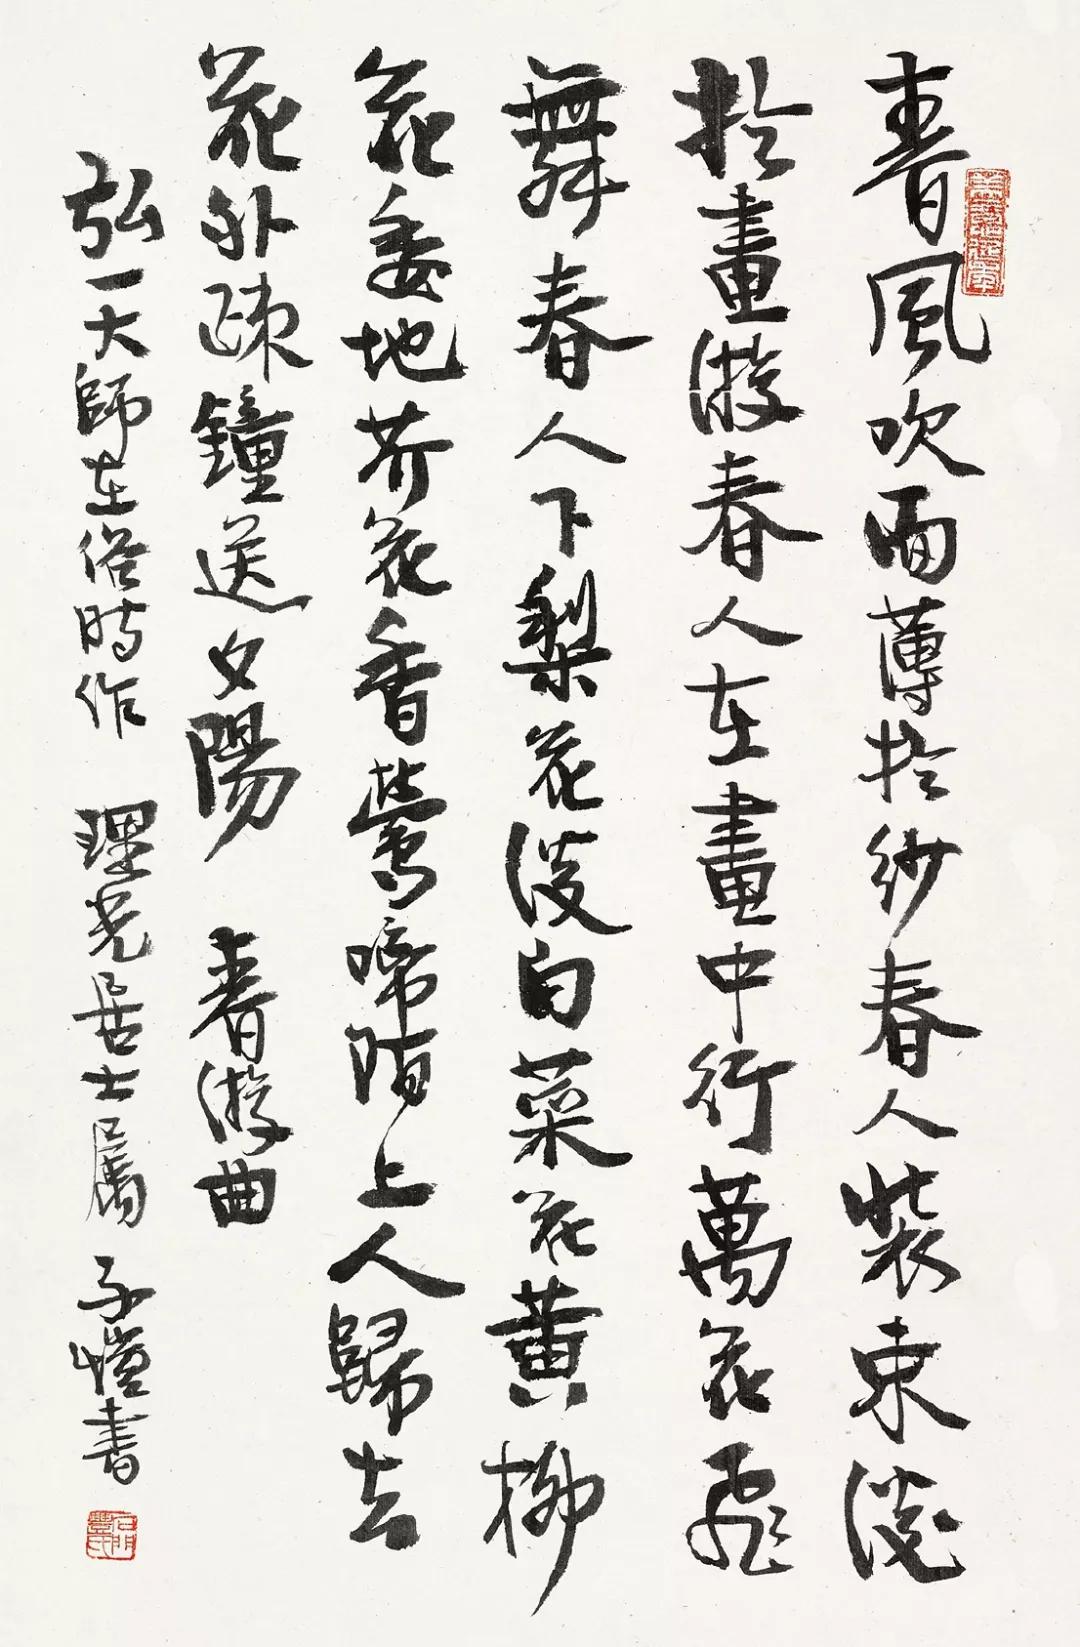 春風吹面薄於紗春人裝束淡
於畫游春人在畫中行萬花飛
舞春人下梨花淡白菜花黃柳
花委地芥花香鶯啼陌上人歸去
花外疎鐘送夕陽 春游曲
弘一大師在俗時作 理光居士屬 子愷書
石門豐氏